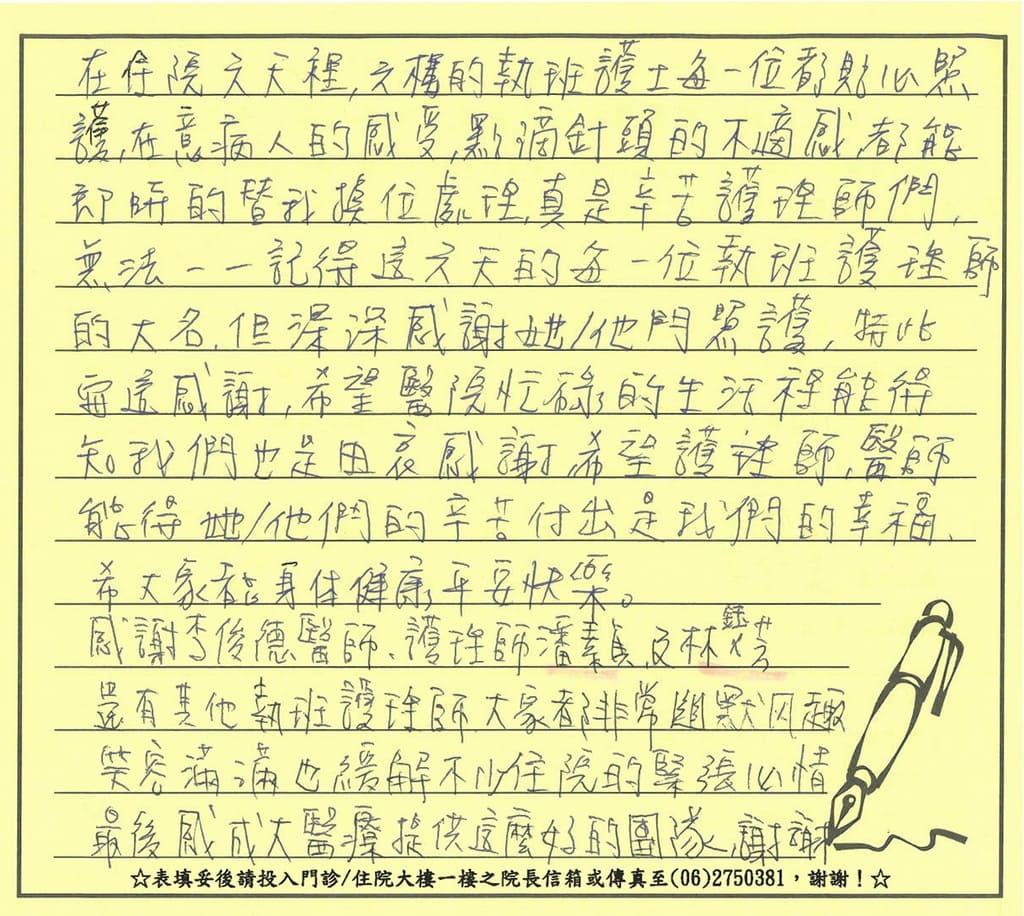 在住院六天裡,六樓的執班護士每一位都貼心照
護,在意病人的感受,點滴針頭的不適感,都能
即時的替我換位處理,真是辛苦護理師們,
無法一一記得這六天的每一位執班護理師
的大名,但深深感謝她/他們照護,特此
感謝,希望醫院忙碌的生活裡能得
知我們也是由衷感謝,希望護理師,醫師
能得她/他們的辛苦付出是我們的幸福,
希大家都身体健康,平安快樂。
感謝李俊德醫師、護理師潘素貞,及林鈺芳
還有其他執班護理師,大家都非常幽默風趣
笑容滿滿也緩解不少住院的緊張心情
最後感成大醫療提供這麼好的團隊,謝謝
☆表填妥後請投入門診/住院大樓一樓之院長信箱或傳真至(06)2750381,謝謝!☆